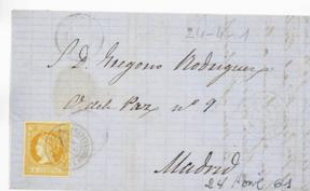 24-4-1
S. D. Gregorio Rodriguez
C. de la Paz nº 9
Madrid
24
61